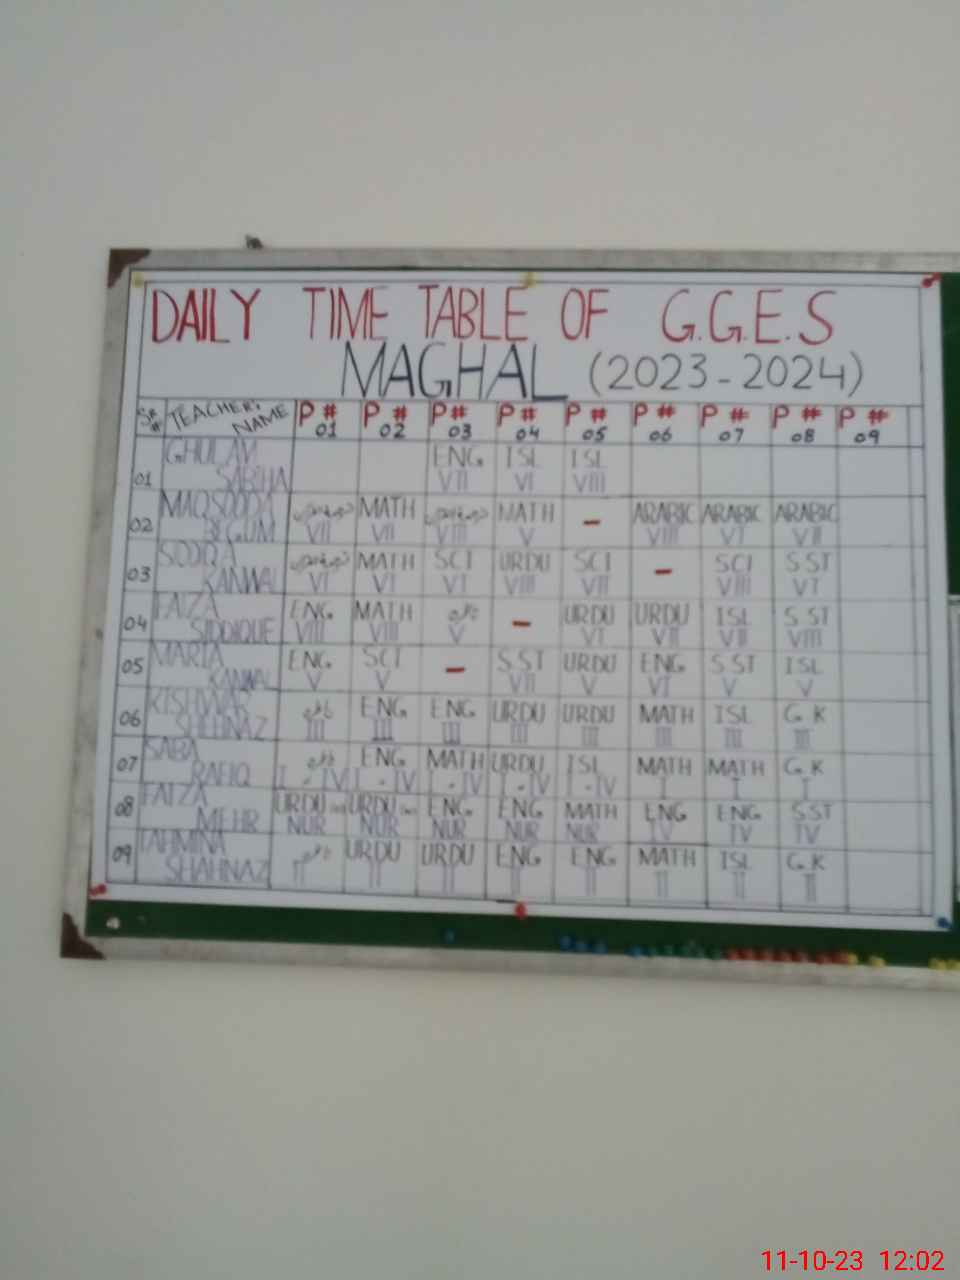 DAILY TIME TABLE OF G.G.E.S
MAGHAL (2023-2024)
Sr # TEACHER, NAME P # 01 P # 02 P # 03 P # 04 P # 05 P # 06 P # 07 P # 08 P # 09
01 GHULAM ENG ISL ISL
VII VI VIII
02 MAQSOODA MATH MATH - ARABIC ARABIC ARABIC
BEGUM VII VII VIII V VIII VI VII
03 MATH SCI URDU SCI - SCI SST
KANWAL VI VI VI VIII VII VIII VI
04 FAIZA ENG MATH - URDU URDU ISL SST
SIDDIQUE VIII VIII V VI VII VII VIII
05 MARIA ENG SCI - SST URDU ENG SST ISL
KANWAL V V VII V VI V V
06 KISHWAR ENG ENG URDU URDU MATH ISL G.K
SHEHNAZ III III III III III III III III
07 SABA ENG MATH URDU ISL MATH MATH G.K
RAFIQ I - IV I - IV I - IV I - IV I - IV I I I
08 FAIZA URDU URDU ENG ENG MATH ENG ENG SST
MEHR NUR NUR NUR NUR NUR IV IV IV
09 TAHMINA URDU URDU ENG ENG MATH ISL G.K
SHAHNAZ II II II II II II II II
11-10-23 12:02